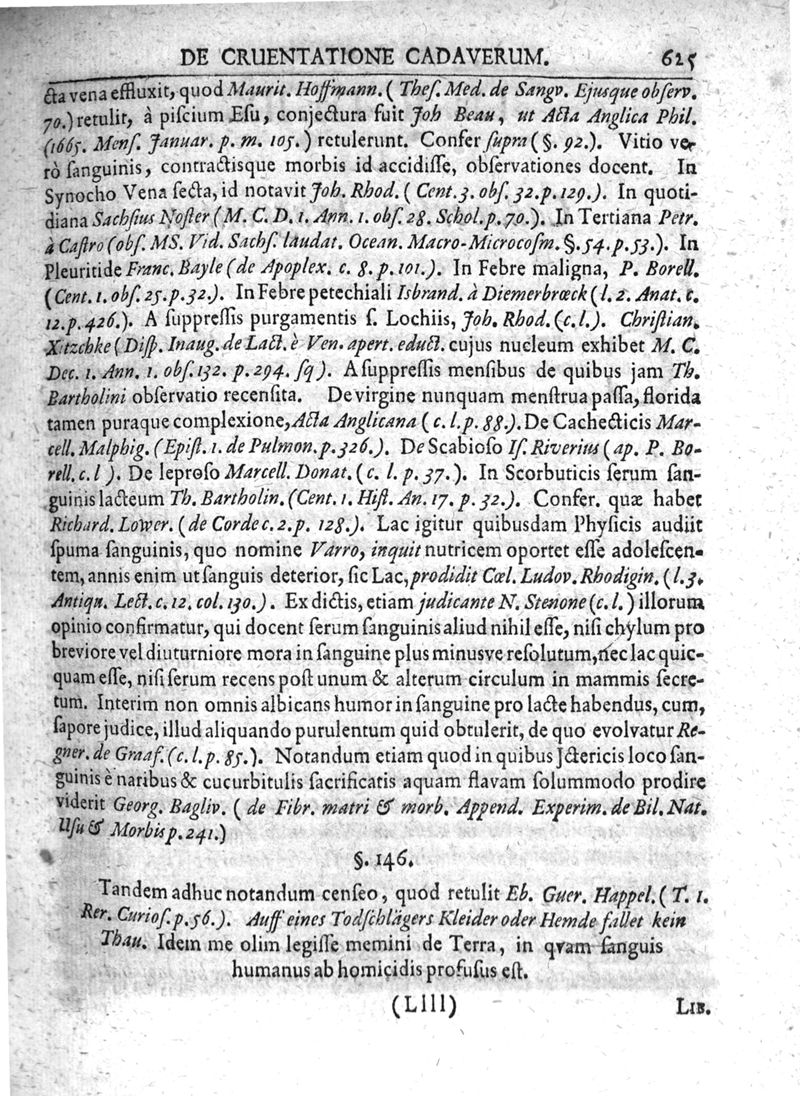 DE CRUENTATIONE CADAVERUM. 625
cta vena effluxit, quod Maurit. Hoffmann. ( Theſ. Med. de Sangv. Ejusque obſerv.
70.) retulit, à piſcium Eſu, conjectura fuit Joh Beau, ut Acta Anglica Phil.
(1665. Menſ. Januar. p. m. 105. ) retulerunt. Confer ſupra ( §. 92.). Vitio ve-
rò ſanguinis, contractisque morbis id accidiſſe, obſervationes docent. In
Synocho Vena ſecta, id notavit Joh. Rhod. ( Cent. 3. obſ. 32. p. 129.). In quoti-
diana Sachſius Noſter (M. C. D. 1. Ann. 1. obſ. 28. Schol. p. 70.). In Tertiana Petr.
à Caſtro (obſ. MS. Vid. Sachſ. laudat. Ocean. Macro-Microcoſm. §. 54. p. 53.). In
Pleuritide Franc. Bayle (de Apoplex. c. 8. p. 101.). In Febre maligna, P. Borell.
(Cent. 1. obſ. 25. p. 32.). In Febre petechiali Isbrand. à Diemerbrœck ( l. 2. Anat. c.
12. p. 426.). A ſuppreſſis purgamentis ſ. Lochiis, Joh. Rhod. (c. l.). Chriſtian.
Xitzchke ( Diſp. Inaug. de Lact. è Ven. apert. educt. cujus nucleum exhibet M. C.
Dec. 1. Ann. 1. obſ. 132. p. 294. ſq ). A ſuppreſſis menſibus de quibus jam Th.
Bartholini obſervatio recenſita. De virgine nunquam menſtrua paſſa, florida
tamen puraque complexione, Acta Anglicana ( c. l. p. 88.). De Cachecticis Mar-
cell. Malphig. (Epiſt. 1. de Pulmon. p. 326.). De Scabioſo Iſ. Riverius ( ap. P. Bo-
rell. c. l ). De leproſo Marcell. Donat. ( c. l. p. 37.). In Scorbuticis ſerum ſan-
guinis lacteum Th. Bartholin. (Cent. 1. Hiſt. An. 17. p. 32.). Confer. quæ habet
Richard. Lower. ( de Corde c. 2. p. 128.). Lac igitur quibusdam Phyſicis audiit
ſpuma ſanguinis, quo nomine Varro, inquit nutricem oportet eſſe adoleſcen-
tem, annis enim ut ſanguis deterior, ſic Lac, prodidit Cœl. Ludov. Rhodigin. ( l. 3.
Antiqu. Lect. c. 12. col. 130.). Ex dictis, etiam judicante N. Stenone (c. l. ) illorum
opinio confirmatur, qui docent ſerum ſanguinis aliud nihil eſſe, niſi chylum pro
breviore vel diuturniore mora in ſanguine plus minusve reſolutum, nec lac quic-
quam eſſe, niſi ſerum recens poſt unum & alterum circulum in mammis ſecre-
tum. Interim non omnis albicans humor in ſanguine pro lacte habendus, cum,
ſapore judice, illud aliquando purulentum quid obtulerit, de quo evolvatur Re-
gner. de Graaf. (c. l. p. 85.). Notandum etiam quod in quibus Jctericis loco ſan-
guinis è naribus & cucurbitulis ſacrificatis aquam flavam ſolummodo prodire
viderit Georg. Bagliv. ( de Fibr. matri & morb. Append. Experim. de Bil. Nat.
Uſu & Morbis p. 241.)
§. 146.
Tandem adhuc notandum cenſeo, quod retulit Eb. Guer. Happel. ( T. 1.
Rer. Curioſ. p. 56.). Auff eines Todſchlägers Kleider oder Hemde fallet kein
Thau. Idem me olim legiſſe memini de Terra, in qvam ſanguis
humanus ab homicidis profuſus eſt.
(Llll) LIB.